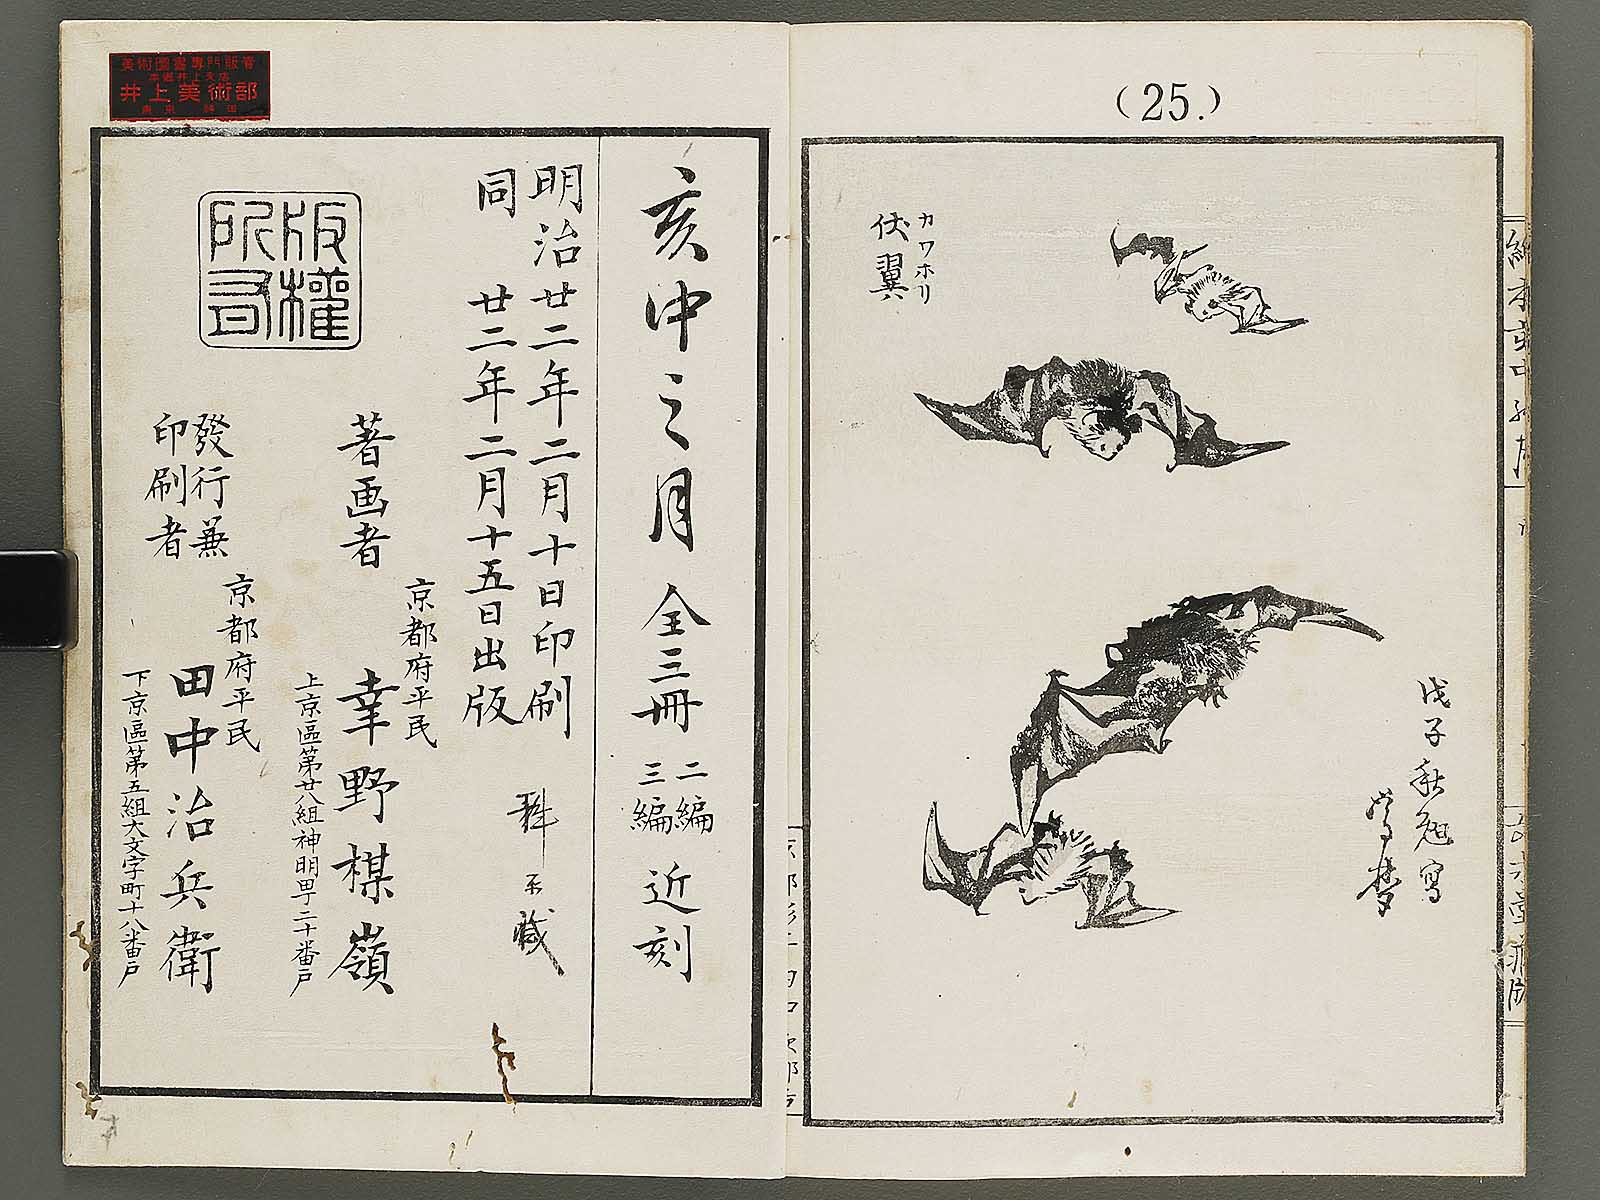 (25.)
カワホリ
伏翼
戊子秋旭寫
亥中之月 全三冊 二編 三編 近刻
明治廿二年二月十日印刷
同 廿二年二月十五日出版
版權所有
著画者
京都府平民
幸野楳嶺
上京區第廿八組神明町二十番戸
發行兼
印刷者
京都府平民
田中治兵衛
下京區第五組大文字町十八番戸
美術圖書專門販賣
本郷井上支店
井上美術部
東京 神田